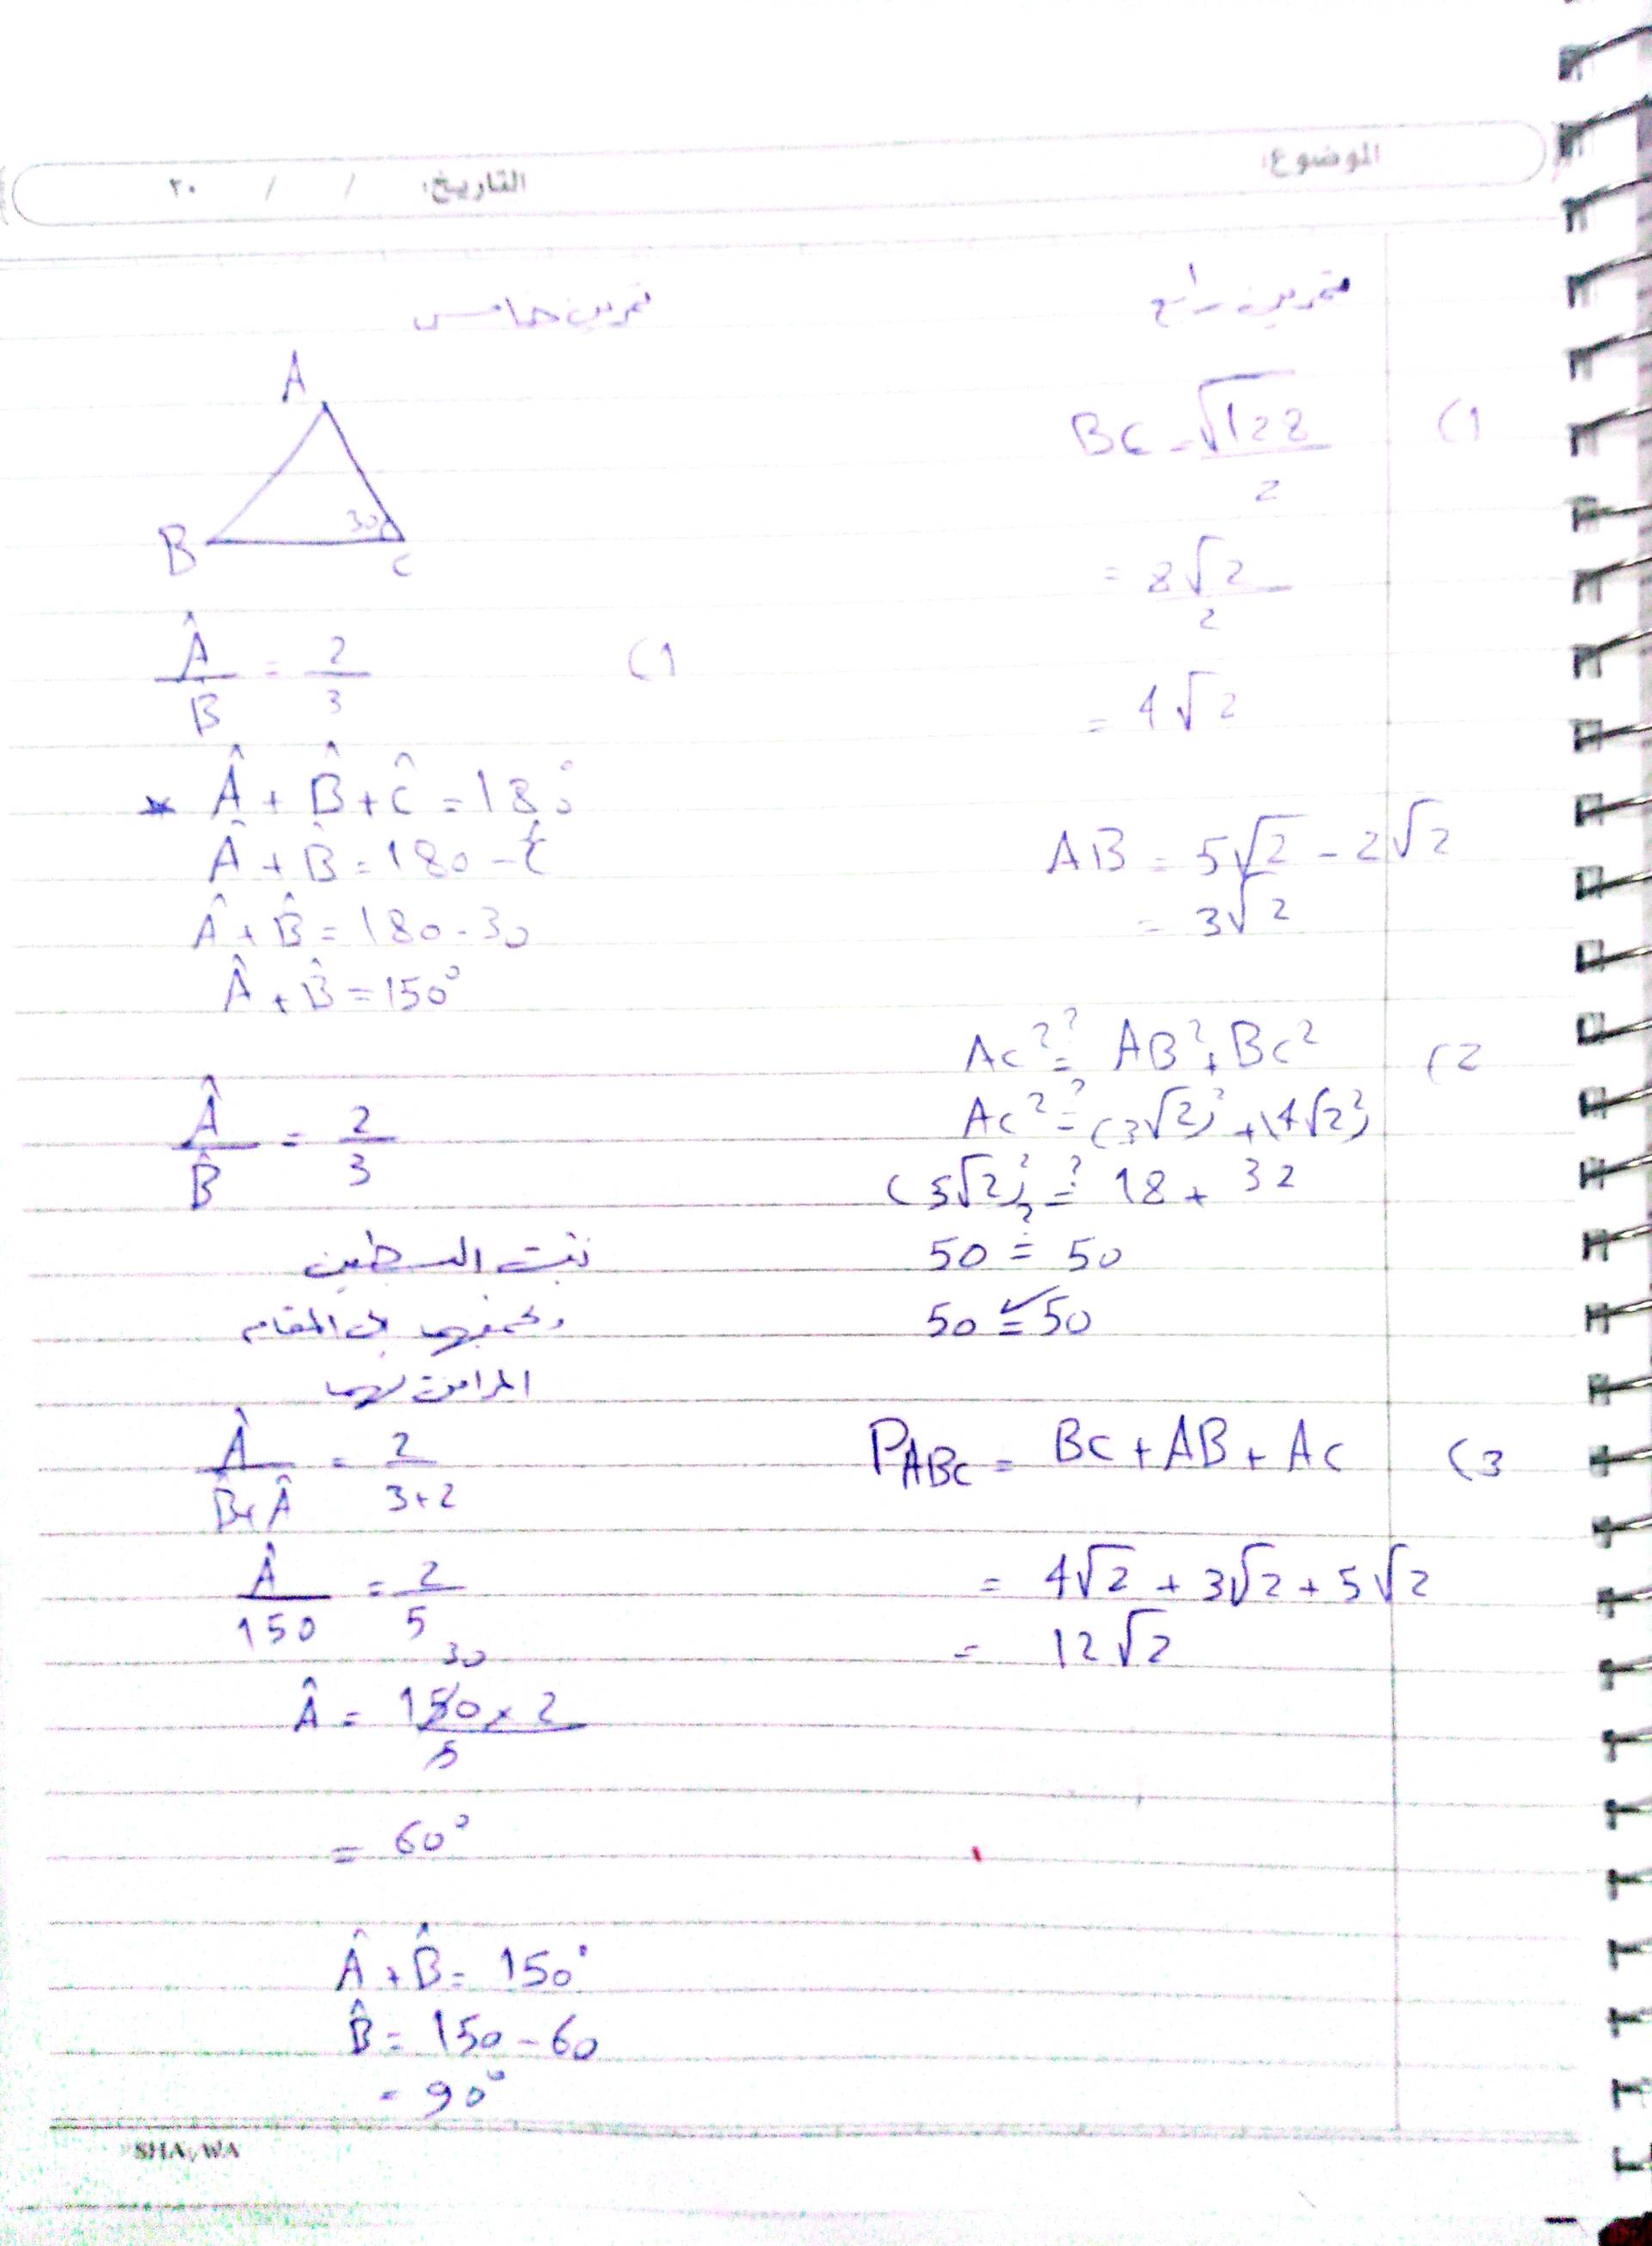 الموضوع:
التاريخ: / / ٢٠
تمرين رابع
(1
BC = √128 / 2
= 8√2 / 2
= 4√2
AB = 5√2 - 2√2
= 3√2
(2
AC² ≟ AB² + BC²
AC² ≟ (3√2)² + (4√2)²
(5√2)² ≟ 18 + 32
50 ≟ 50
50 = 50 ✓
(3
P_ABC = BC + AB + AC
= 4√2 + 3√2 + 5√2
= 12√2
تمرين خامس
A
B
30
C
(1
Â / B = 2 / 3
* Â + B̂ + Ĉ = 180°
Â + B̂ = 180 - Ĉ
Â + B̂ = 180 - 30
Â + B̂ = 150°
Â / B̂ = 2 / 3
نثبت البسطين
المقام
لهما
Â / B̂ + Â = 2 / 3+2
Â / 150 = 2 / 5
30
Â = 150 × 2 / 5
= 60°
Â + B̂ = 150°
B̂ = 150 - 60
= 90°
SHALWA